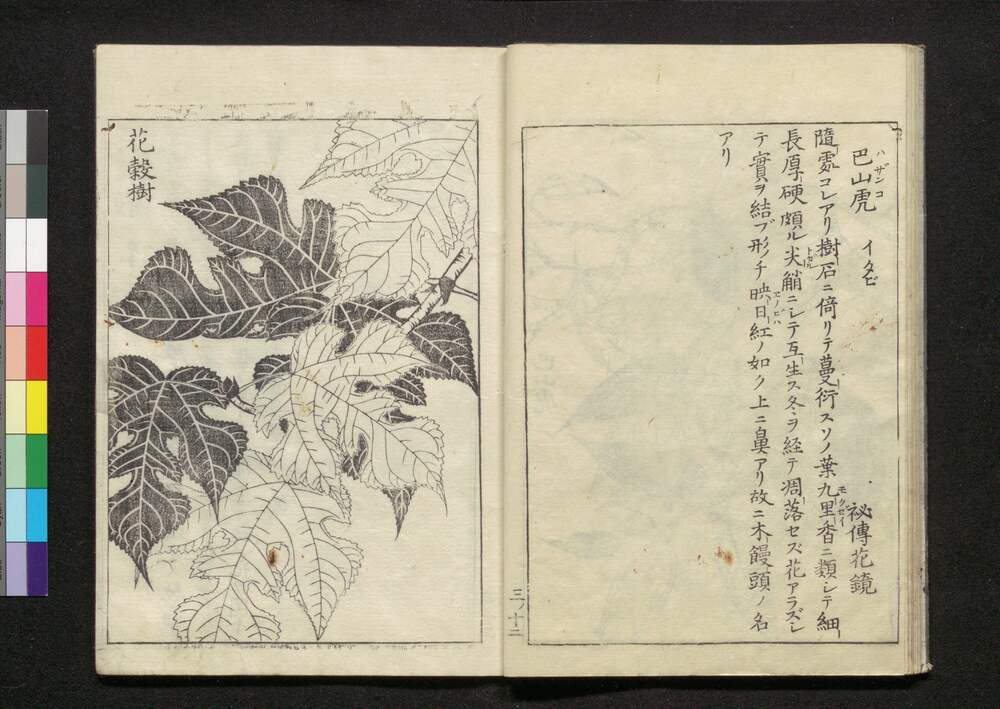 巴山虎 ハザンコ イタビ 祕傳花鏡
隨處コレアリ樹石ニ倚リテ蔓衍スソノ葉九里香モクセイニ類シテ細
長厚硬頗ル尖トガル觧ニシテ互生ス冬ヲ経テ凋落セズ花アラズシ
テ實ヲ結ブ形チ映日紅ノ如ク上ニ鼻アリ故ニ木饅頭ノ名
アリ
花榖樹
三ノ十二